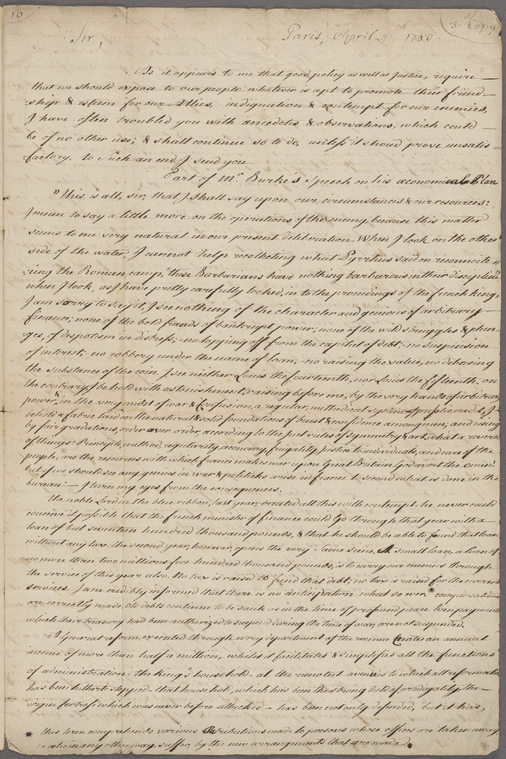 10
3d Copy
Sir,
Paris, April th 1780
As it appears to me that good policy as well as Justice, require
that we should expose to our people whatever is apt to promote their friend
ship & esteem for our Allies, indignation & contempt for our enemies,
I have often troubled you with anecdotes & observations, which could
be of no other use; & shall continue so to do, unless it should prove unsatis
factory. to such an end I send you
Part of Mr. Burke's Speech on his œconomical Plan
"This is all, sir, that I shall say upon our circumstances & our resources:
I mean to say a little more on the operations of the enemy because this matter
seems to me very natural in our present deliberation. When I look on the other
side of the water, I cannot help recollecting what Pyrrhus said on reconnoite
ring the Roman camp, These Barbarians have nothing barbarous in their discipline.
when I look, as I have pretty carefully looked, into the proceedings of the french king,
I am sorry to say it, I see nothing of the character and genius of arbitrary
finance; none of the bold frauds of bankrupt power; none of the wild struggles & plun
ges, of despotism in distress; no lopping off from the capital of debt; no suspension
of interest; no robbery under the name of loan; no raising the value, no debasing
the substance of the coin. I see neither Louis the fourteenth, nor Louis the fifteenth, on
the contrary, I behold with astonishment, raising before me, by the very hands of arbitrary
power, & in the very midst of war & Confusion, a regular, methodical system of public credit; I
behold a fabric laid on the natural & solid foundations of trust & confidence among men; and rising
by fair gradations order over order according to the just rules of symmetry & art. what a reverse
of things! Principle, method, regularity, œconomy, frugality, justice to individuals, and care of the
people, are the resources with which france makes war upon Great Britain. God avert the omen!
but if we should see any genius in war & politicks arise in france to second what is done in the
bureau:—I turn my eyes from the consequences.
the noble Lord in the blue ribbon, last year, treated all this with contempt. he never could
conceive it possible that the french minister of finance could go through that year with a
loan of but seventeen hundred thousand pounds, & that he should be able to found that loan
without any tax. the second year, however, opens the very same scene. A small loan, a loan of
no more than two millions five hundred thousand pounds, is to carry our enemies through
the service of this year also. no tax is raised to fund that debt; no tax is raised for the current
services. I am credibly informed that there is no anticipation whatsoever. compensations
are correctly made. old debts continue to be sunk as in the time of profound peace. Even payments
which their treasury had been authorized to suspend during the time of war, are not suspended.
A general reform, executed through every department of the revenue Creates an annual
income of more than half a million, whilst it facilitates & simplifies all the functions
of administration. the king's household. at the remotest avenues to which all reformation
has been hitherto stopped. that household, which has been the strong hold of prodigality, the
virgin fortress which was never before attacked—has been not only not defended, but it has,